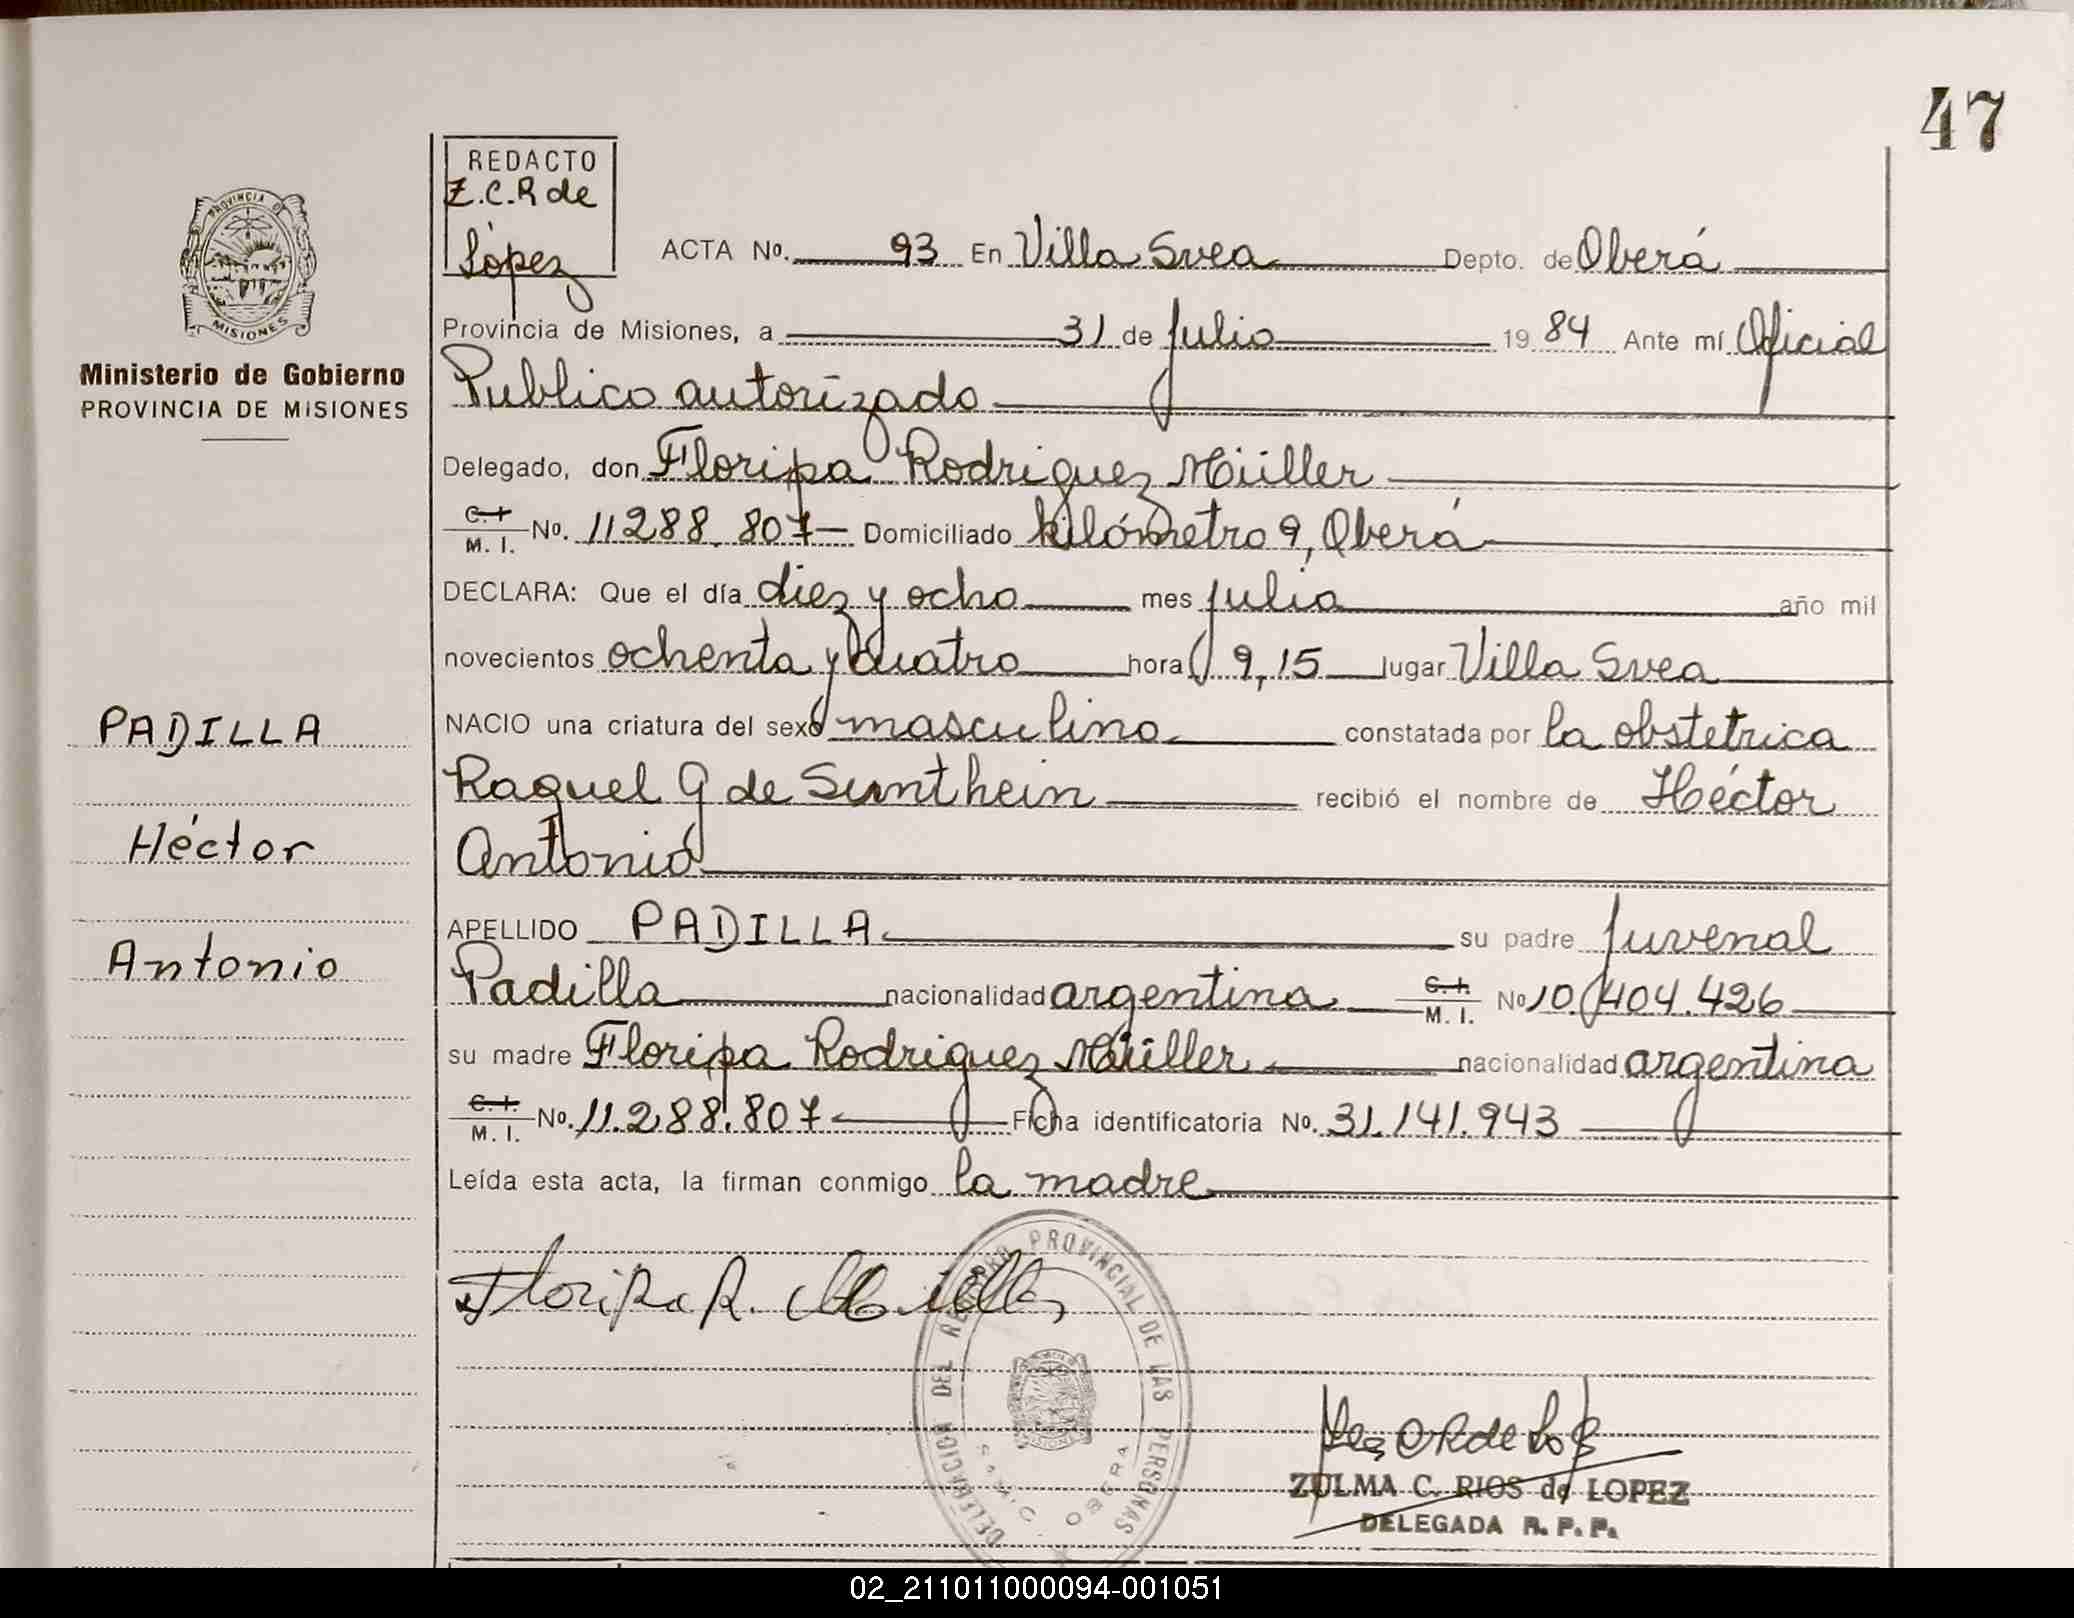 47
REDACTO
Z.C.R de
López
PROVINCIA DE
MISIONES
Ministerio de Gobierno
PROVINCIA DE MISIONES
ACTA No. 93 En Villa Svea Depto. de Oberá
Provincia de Misiones, a 31 de Julio 1984 Ante mí Oficial
Publico autorizado
Delegado, don Floripa Rodriguez Müller
C.I. M. I. No. 11288.807 Domiciliado kilómetro 9, Oberá
DECLARA: Que el día diez y ocho mes Julio año mil
novecientos ochenta y cuatro hora 9,15 lugar Villa Svea
NACIO una criatura del sexo masculino constatada por la obstetrica
Raquel G de Sunthein recibió el nombre de Héctor
Antonio
APELLIDO PADILLA su padre Juvenal
Padilla nacionalidad argentina C.I. M. I. No 10.404.426
su madre Floripa Rodriguez Müller nacionalidad argentina
C.I. M. I. No. 11.288.807 Ficha identificatoria No. 31.141.943
Leída esta acta, la firman conmigo la madre
PADILLA
Héctor
Antonio
Floripa R. Müller
DELEGACION DEL REGISTRO PROVINCIAL DE LAS PERSONAS
OBERA
MISIONES
ZULMA C. RIOS de LOPEZ
DELEGADA R. P. P.
02_211011000094-001051